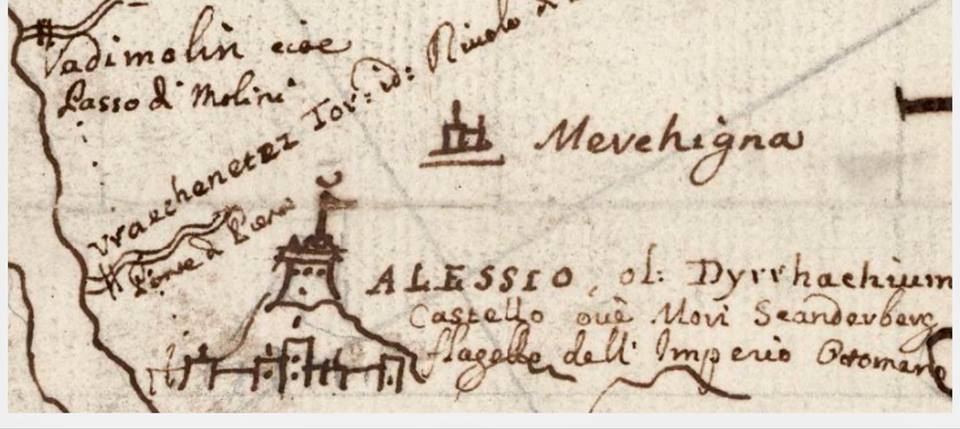 Vadimolin cioe
Passo di Molini
Vrachenetez Tor: id: Rivolo di
Ponte di Piera
Merchigna
ALESSIO, ol: Dyrrhachium
Castello ove Mori Scanderberg
flagello dell' Imperio Ottomano